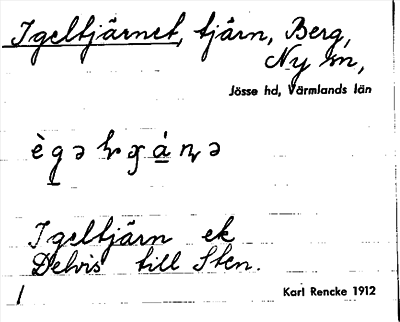 Igeltjärnet, tjärn, Berg,
Ny sn,
Jösse hd, Värmlands län
Igeltjärn ek
Delvis till Sten.
1
Karl Rencke 1912